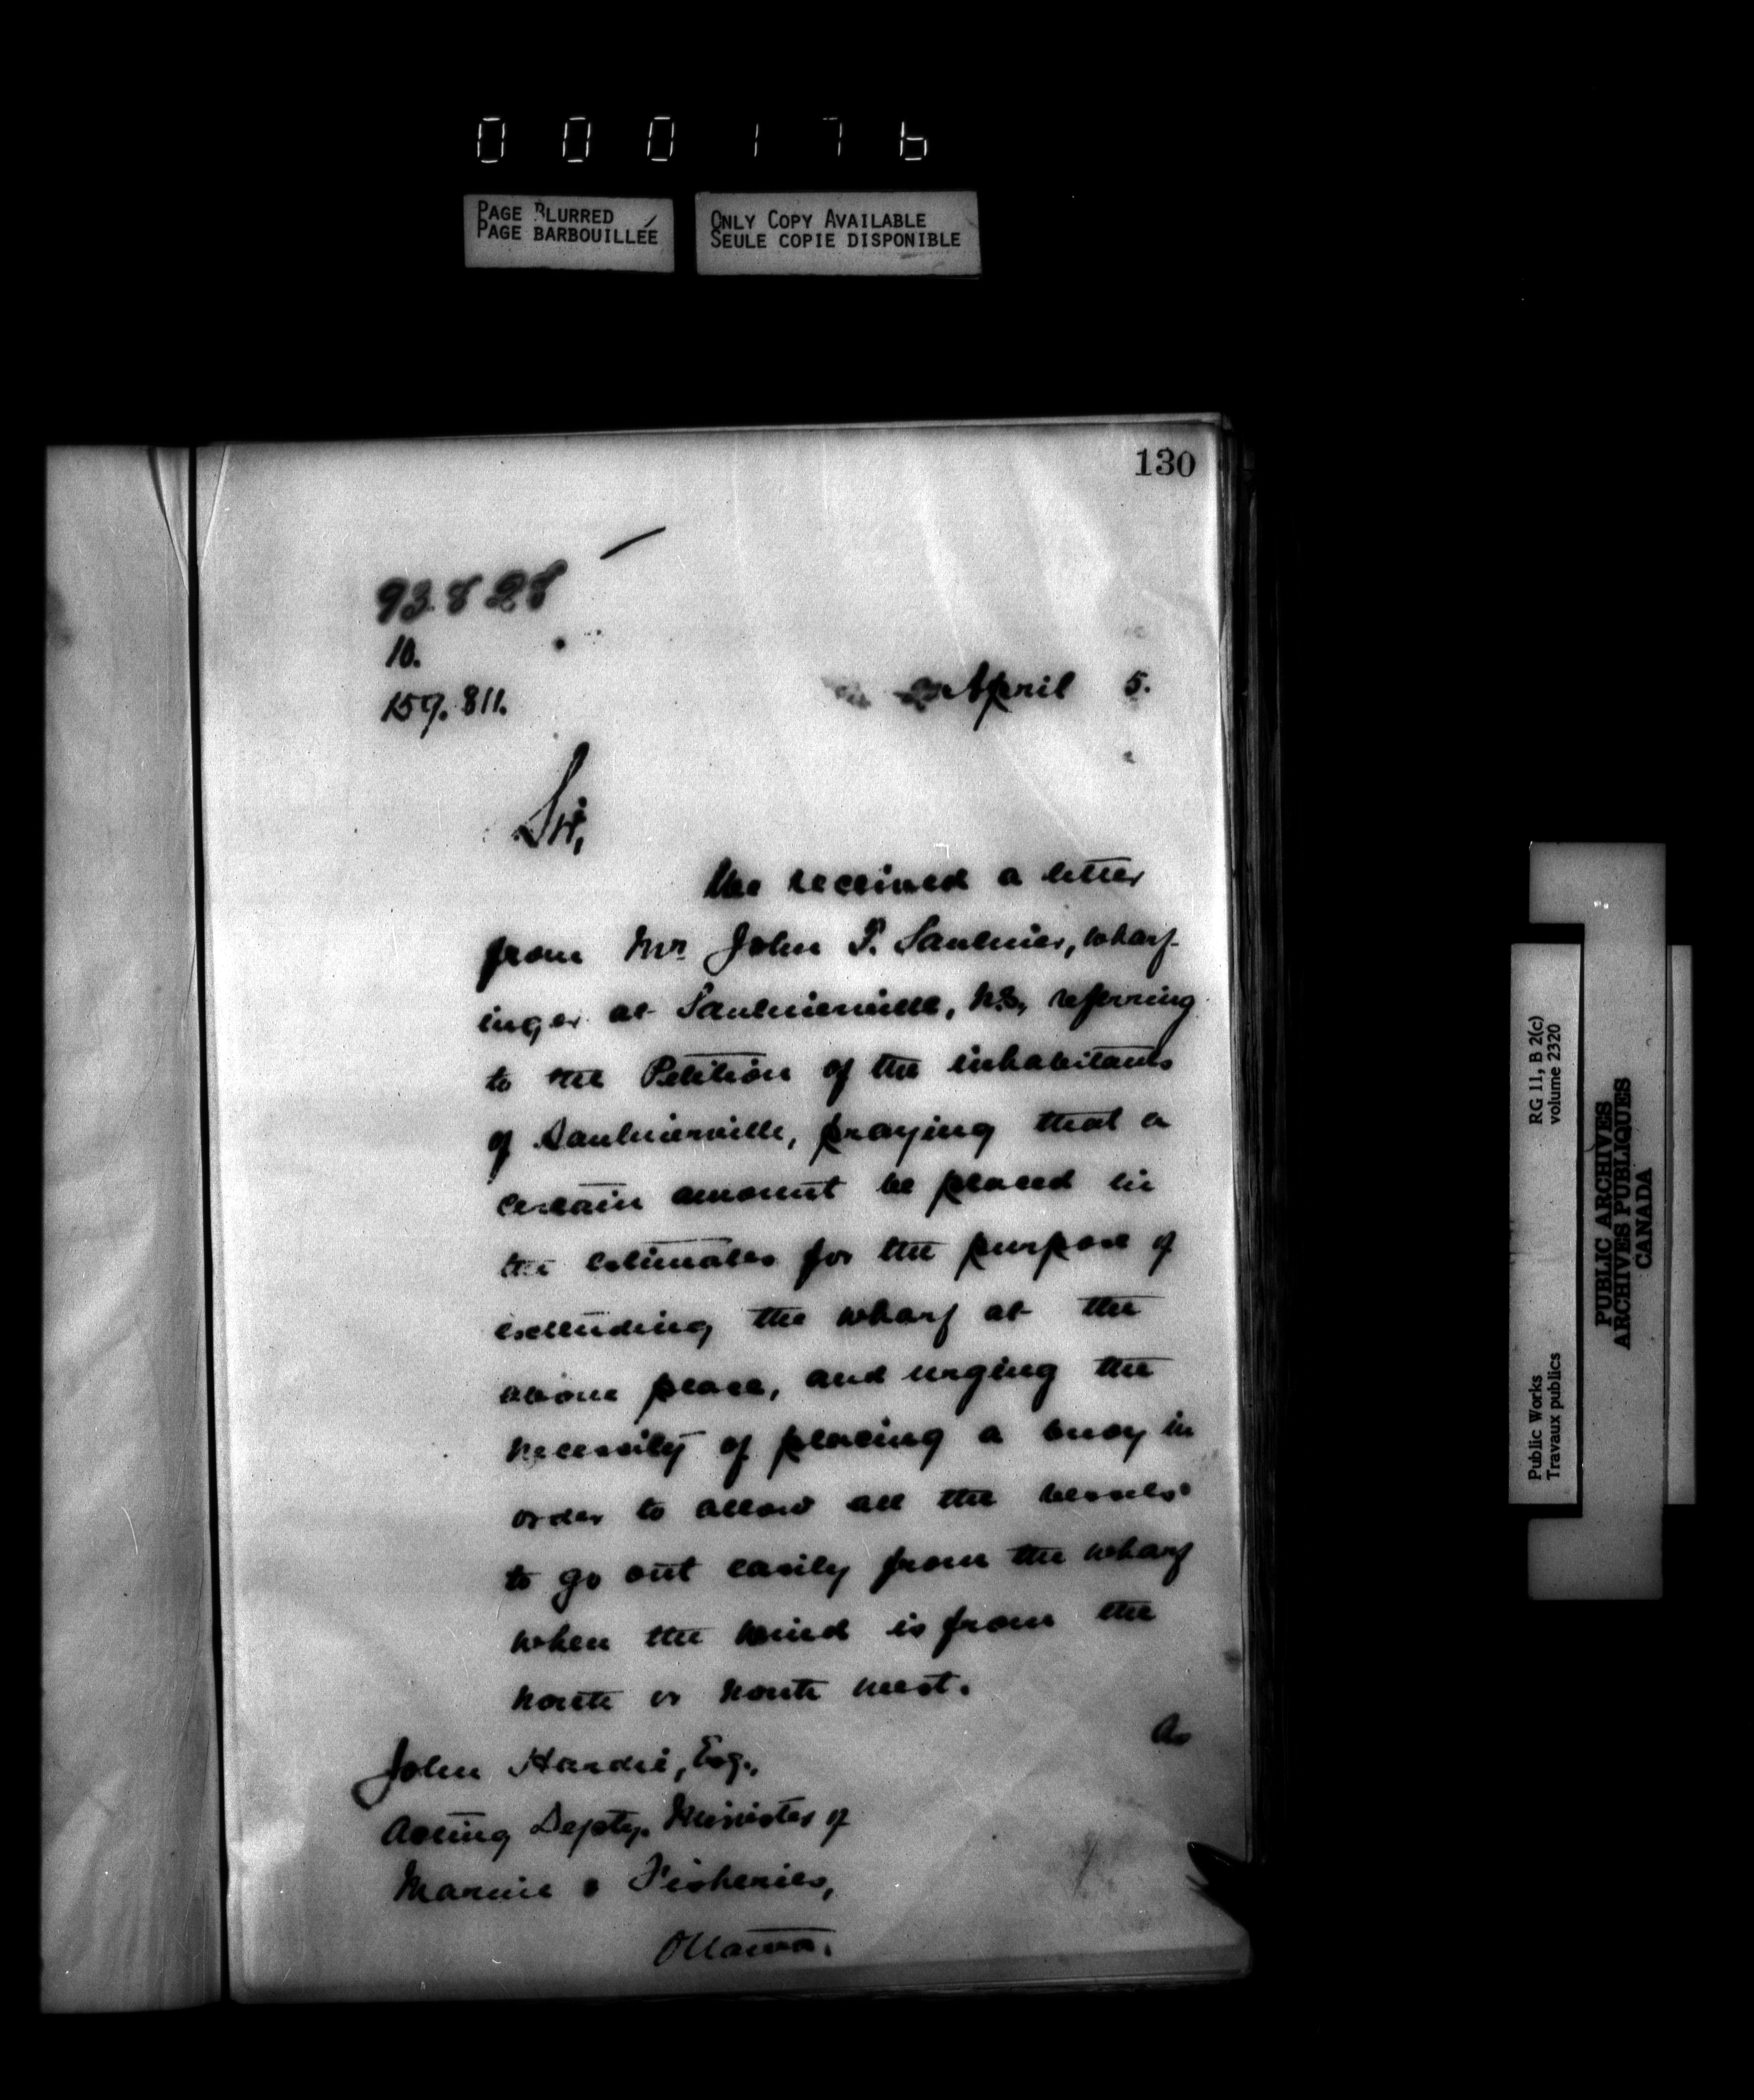 000176
PAGE BLURRED
PAGE BARBOUILLÉE
ONLY COPY AVAILABLE
SEULE COPIE DISPONIBLE
130
93.828
10.
159.811.
April 5.
Sir,
We received a letter
from Mr John P. Saulnier, wharf-
inger at Saulnierville, N.S., referring
to the Petition of the inhabitants
of Saulnierville, praying that a
certain amount be placed in
the estimates for the purpose of
extending the wharf at the
above place, and urging the
necessity of placing a buoy in
order to allow all the vessels
to go out easily from the wharf
when the wind is from the
North or North West.
As
John Hardie, Esq.,
Acting Depty. Minister of
Marine & Fisheries,
Ottawa.
Public Works
Travaux publics
RG 11, B 2(c)
volume 2320
PUBLIC ARCHIVES
ARCHIVES PUBLIQUES
CANADA